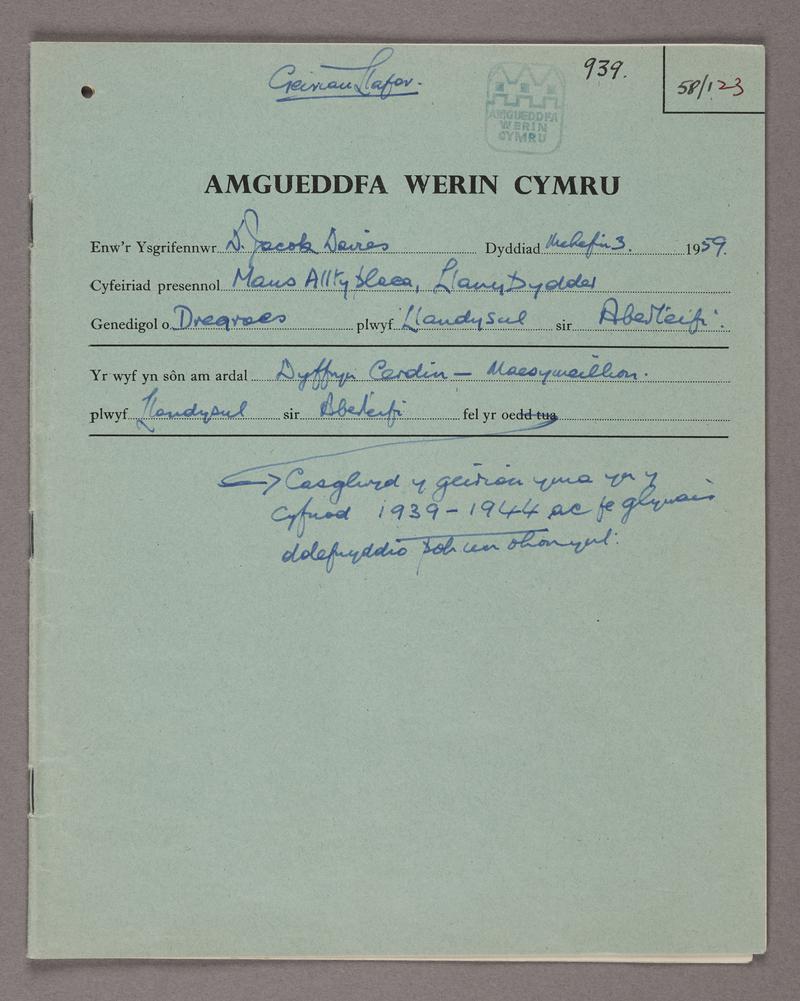 Geiriau Llafar.
939.
58/123
AMGUEDDFA
WERIN
CYMRU
AMGUEDDFA WERIN CYMRU
Enw'r Ysgrifennwr D. Jacob Davies Dyddiad Mehefin 3. 1959.
Cyfeiriad presennol Mans Alltyblaca, Llanybydder
Genedigol o Dregroes plwyf Llandysul sir Aberteifi.
Yr wyf yn sôn am ardal Dyffryn Cerdin — Maesymeillion.
plwyf Llandysul sir Aberteifi fel yr oedd tua
→ Casglwyd y geiriau yma yn y
cyfnod 1939-1944 ac fe glywais
ddefnyddio pob un ohonynt.